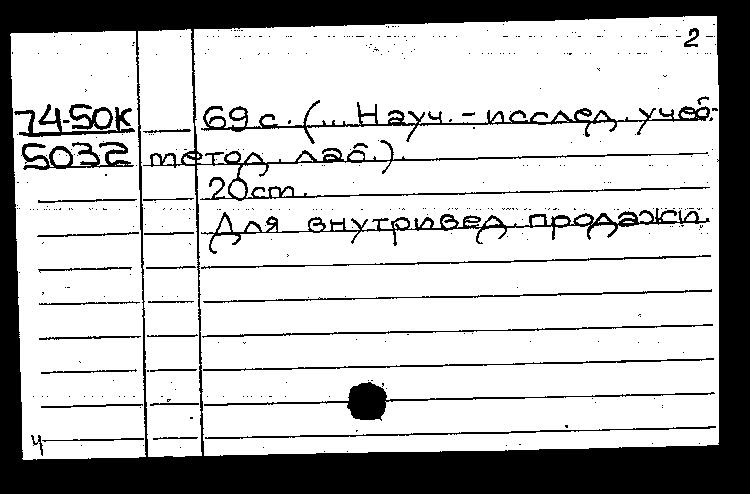 2
74-50К 69 с. (... Науч.-исслед. учеб.-
5032 метод. лаб.).
20cm.
Для внутривед. продажи.
ч